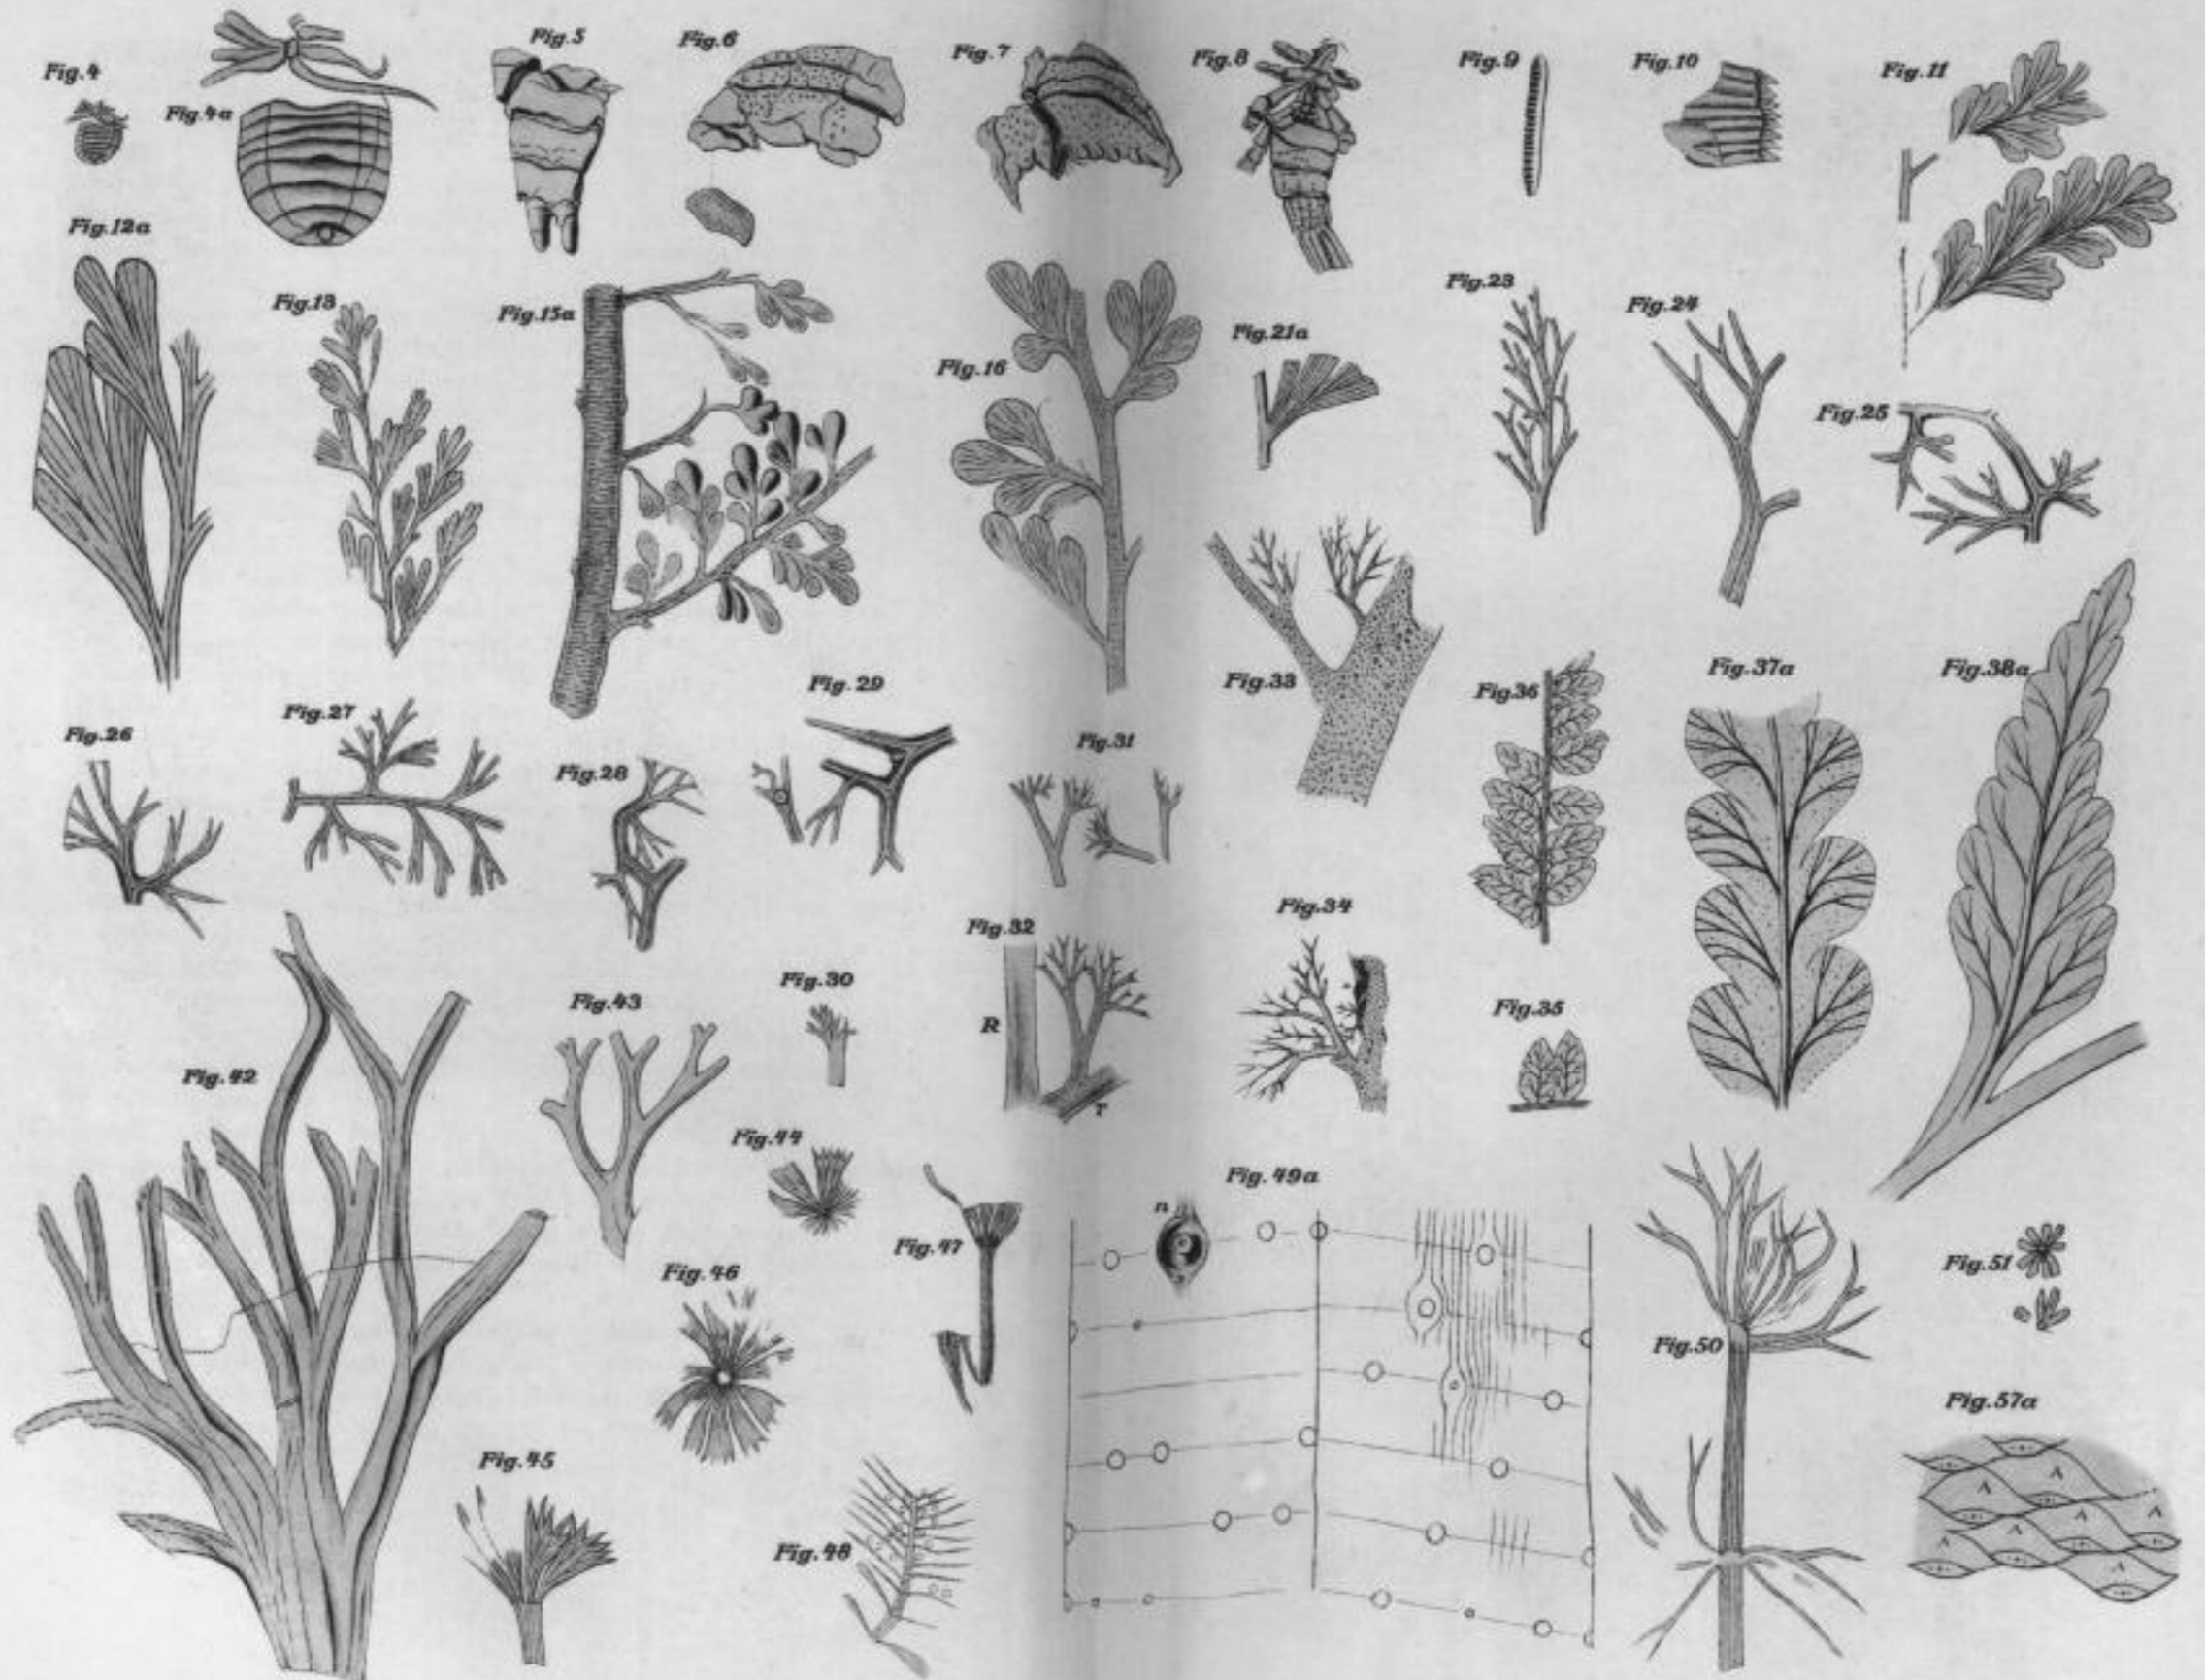 Fig.4
Fig.4a
Fig.5
Fig.6
Fig.7
Fig.8
Fig.9
Fig.10
Fig.11
Fig.12a
Fig.13
Fig.15a
Fig.16
Fig.21a
Fig.23
Fig.24
Fig.25
Fig.26
Fig.27
Fig.28
Fig.29
Fig.31
Fig.33
Fig.36
Fig.37a
Fig.38a
Fig.42
Fig.43
Fig.30
Fig.32
R
r
Fig.34
Fig.35
Fig.44
Fig.45
Fig.46
Fig.47
Fig.48
Fig.49a
n
Fig.50
Fig.51
Fig.57a